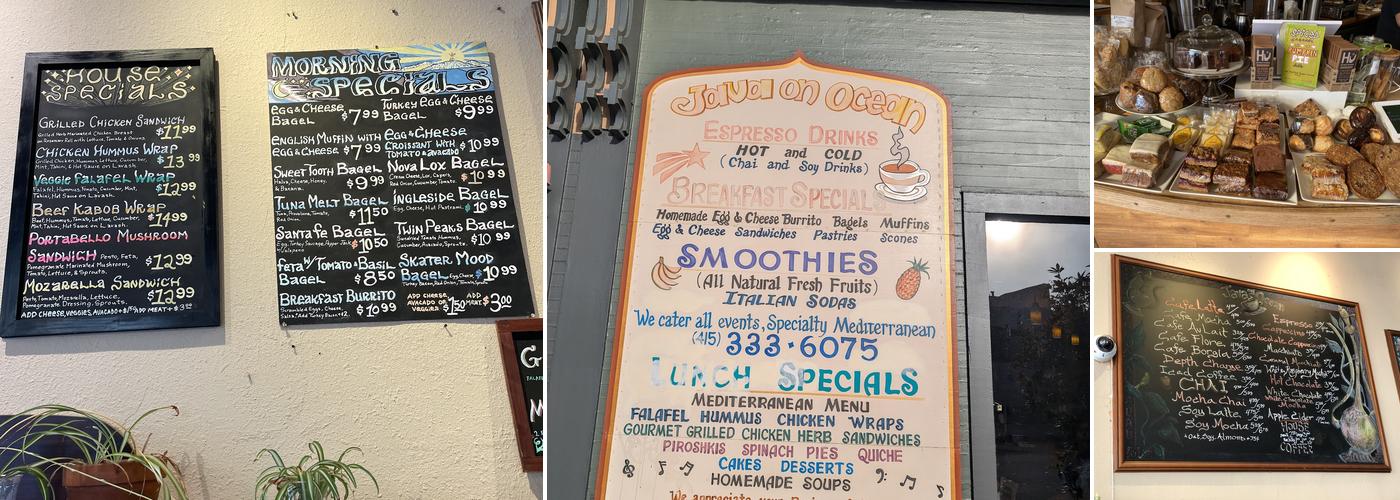 HOUSE
SPECIALS
GRILLED CHICKEN SANDWICH
Grilled Herb Marinated Chicken Breast
on Rosemary Roll with Lettuce, Tomato & Onions
$11.99
CHICKEN HUMMUS WRAP
Grilled Chicken, Hummus, Lettuce, Cucumber,
Mint, Tahini, Hot Sauce on Lavash
$13.99
VEGGIE FALAFEL WRAP
Falafel, Hummus, Tomato, Cucumber, Mint,
Tahini, Hot Sauce on Lavash.
$12.99
BEEF KABOB WRAP
Beef, Hummus, Tomato, Lettuce, Cucumber,
Mint, Tahini, Hot Sauce on Lavash.
$14.99
PORTABELLO MUSHROOM
SANDWICH Pesto, Feta,
Pomegranate Marinated Mushroom,
Tomato, Lettuce, & Sprouts.
$12.99
MOZARELLA SANDWICH
Pesto, Tomato, Mozzarella, Lettuce,
Pomegranate Dressing, Sprouts,
$12.99
MORNING
SPECIALS
EGG & CHEESE
BAGEL $7.99
TURKEY EGG & CHEESE
BAGEL $9.99
ENGLISH MUFFIN WITH
EGG & CHEESE $7.99
EGG & CHEESE
CROISSANT WITH
TOMATO & AVOCADO $10.99
SWEET TOOTH BAGEL
Halva, Cheese, Honey,
& Banana. $9.99
NOVA LOX BAGEL
Cream Cheese, Lox, Capers,
Red Onion, Cucumber, Tomato. $10.99
TUNA MELT BAGEL
Tuna, Provolone, Tomato,
Red Onion. $11.50
INGLESIDE BAGEL
Egg, Cheese, Hot Pastrami. $10.99
SANTA FE BAGEL
Egg, Turkey Sausage, Pepper Jack
& Jalapeno $10.50
TWIN PEAKS BAGEL
Sundried Tomato Hummus,
Cucumber, Avocado, Sprouts. $10.99
FETA W/TOMATO & BASIL
BAGEL $8.50
SKATER MOOD
BAGEL Egg, Cheese,
Turkey Bacon, Red Onion, Tomato, Sprouts $10.99
BREAKFAST BURRITO
Scrambled Eggs, Cheese,
$10.99
ADD CHEESE
AVOCADO OR
VEGGIES $1.50
ADD
MEAT $3.00
Java on Ocean
ESPRESSO DRINKS
HOT and COLD
(Chai and Soy Drinks)
BREAKFAST SPECIAL
Homemade Egg & Cheese Burrito Bagels Muffins
Egg & Cheese Sandwiches Pastries Scones
SMOOTHIES
(All Natural Fresh Fruits)
ITALIAN SODAS
We cater all events, Specialty Mediterranean
(415) 333·6075
LUNCH SPECIALS
MEDITERRANEAN MENU
FALAFEL HUMMUS CHICKEN WRAPS
GOURMET GRILLED CHICKEN HERB SANDWICHES
PIROSHKIS SPINACH PIES QUICHE
CAKES DESSERTS
HOMEMADE SOUPS
PUMPKIN
PIE
HU
HU
Cafe Latte
Cafe Mocha
Cafe Au Lait
Cafe Flore
Cafe Borgia
Depth Charge
Iced Coffee
CHAI
Mocha Chai
Soy Latte
Soy Mocha
Espresso
Cappuccino
Chocolate Cappuccino
Macchiato
Hot Chocolate
White Chocolate
White Chocolate
Mocha
Apple Cider
HOUSE
COFFEE